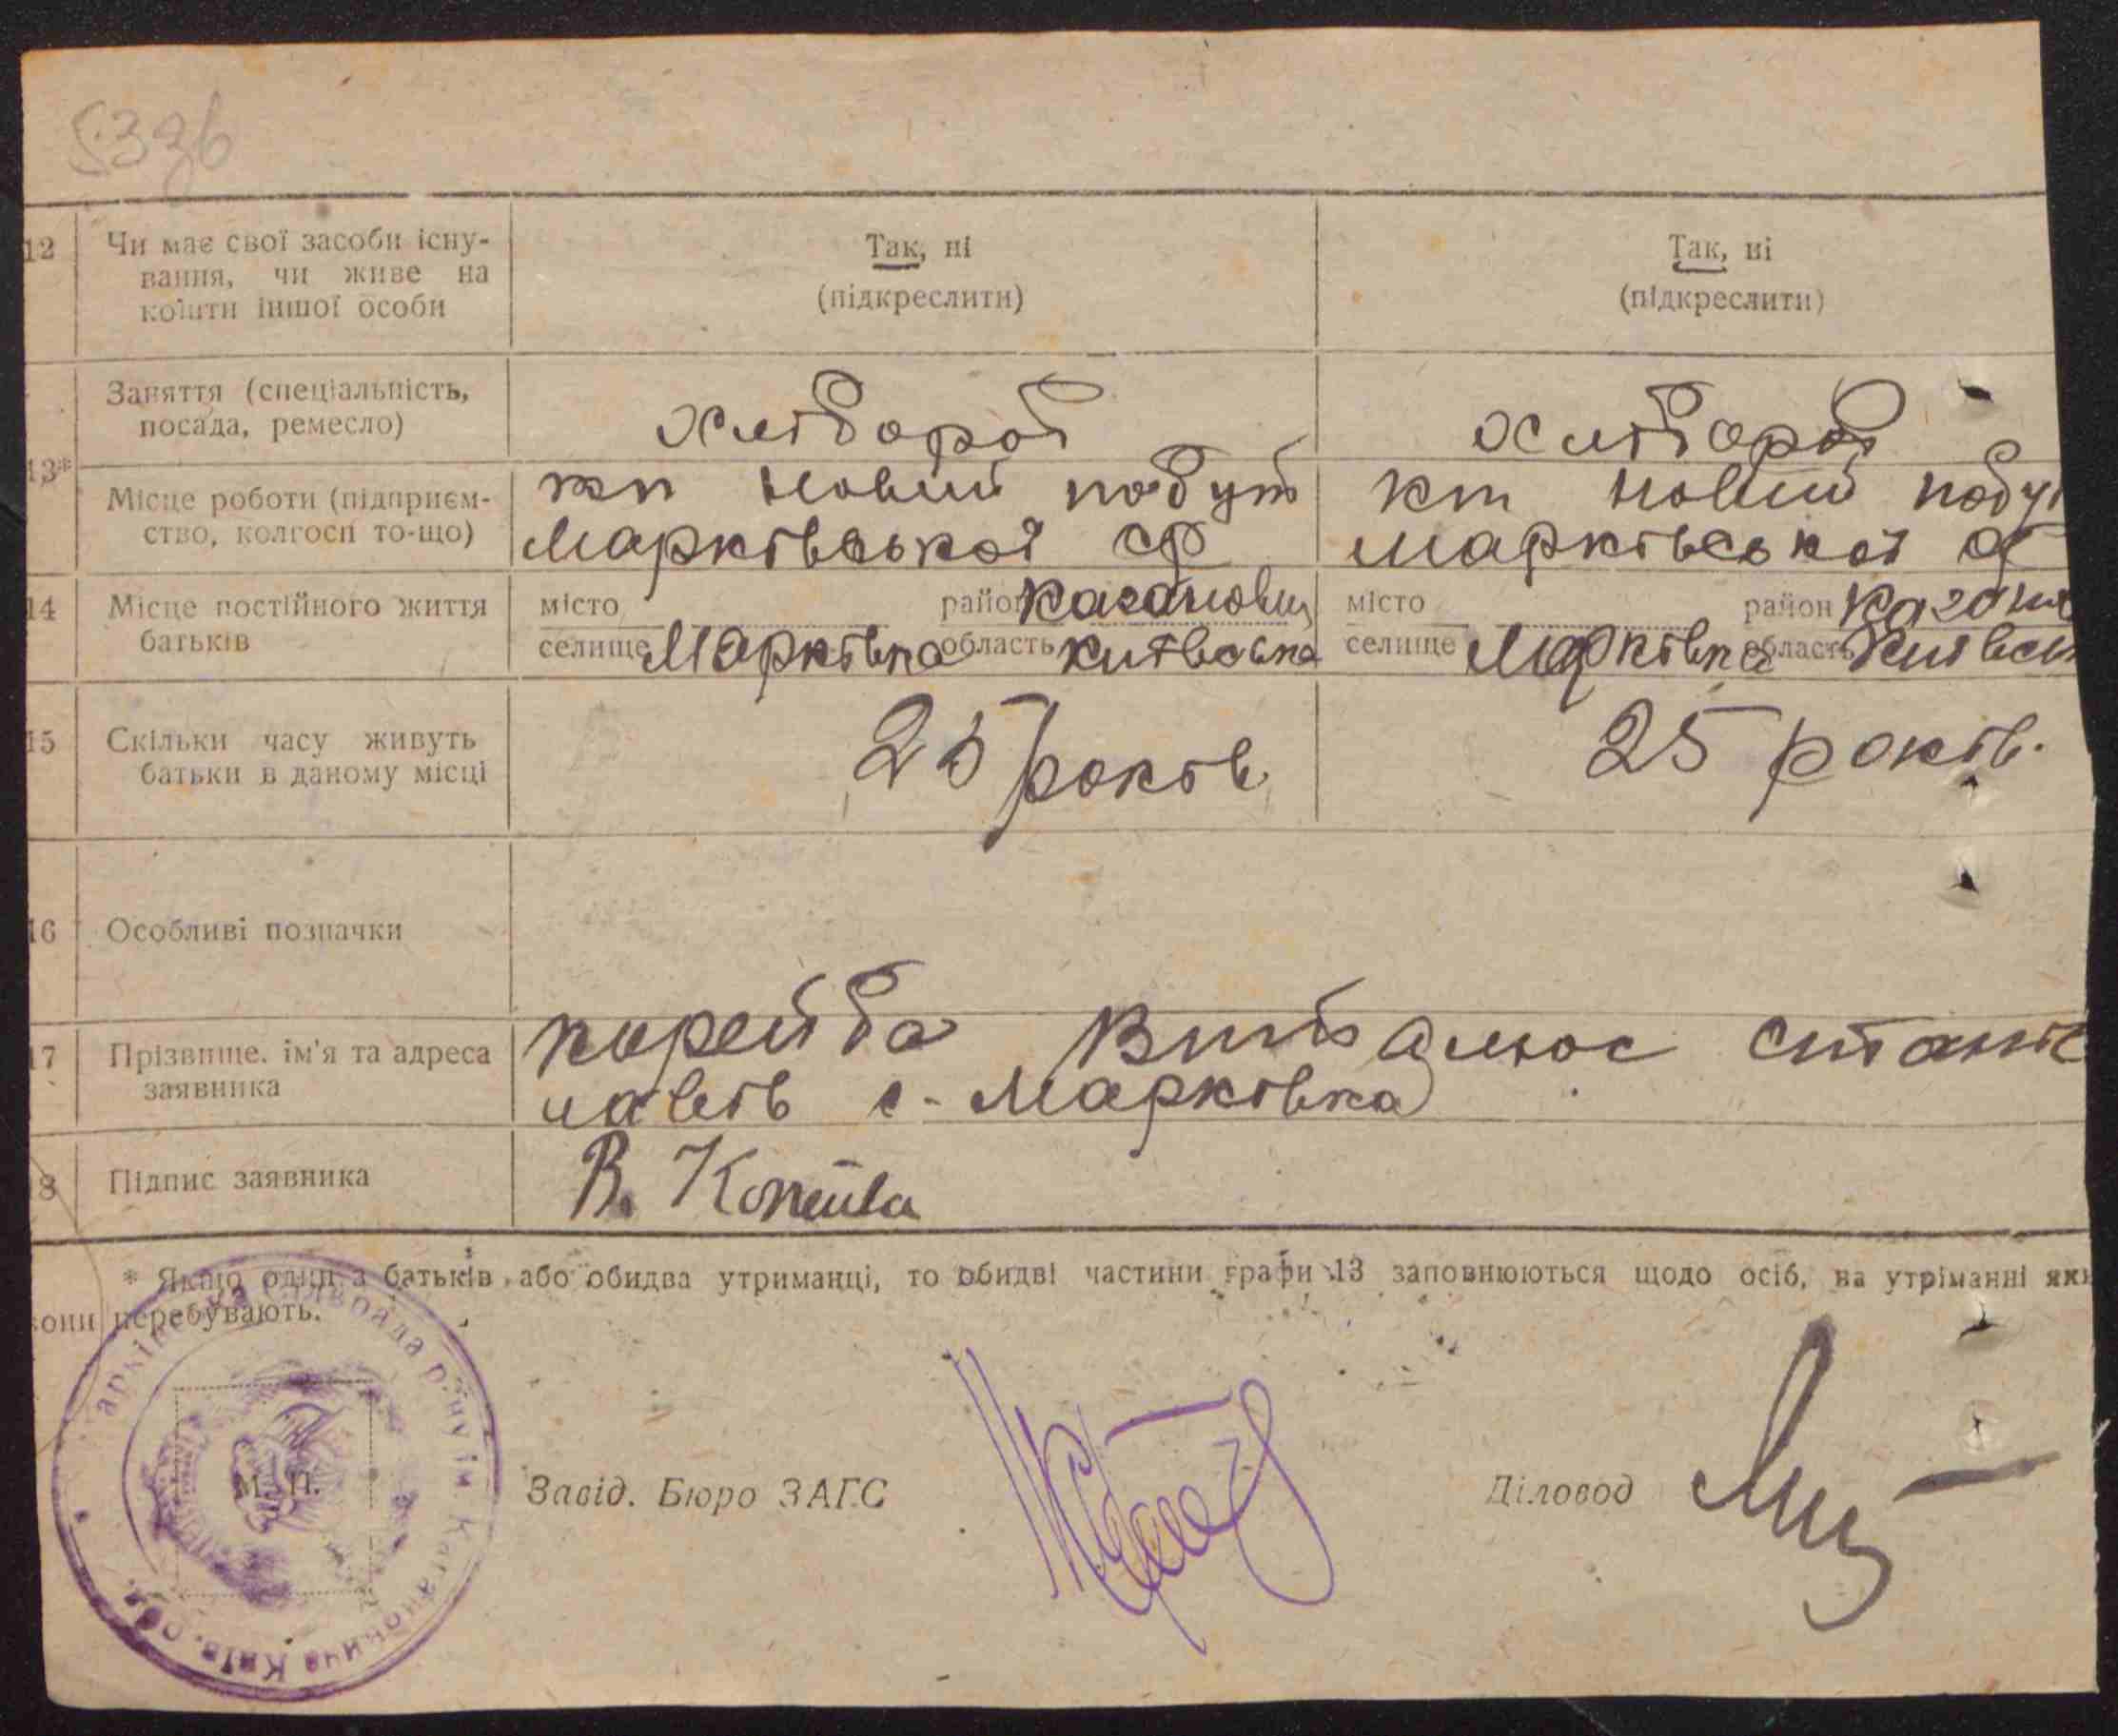 533б
12 Чи має свої засоби існу- Так, ні Так, ні
вання, чи живе на (підкреслити) (підкреслити)
кошти іншої особи
Заняття (спеціальність, хлібороб хлібороб
посада, ремесло)
13*
Місце роботи (підприєм- кп Новий побут кп Новий побут
ство, колгосп то-що) Марківської ср Марківської
14 Місце постійного життя місто район Каганович місто район
батьків селище Марківка область київська селище Марківка область
15 Скільки часу живуть 25 років 25 років.
батьки в даному місці
16 Особливі позначки
17 Прізвище. ім'я та адреса корейба
заявника с. Марківка
18 Підпис заявника В.
* Якщо один з батьків або обидва утриманці, то обидві частини графи 13 заповнюються щодо осіб, на утріманні яки
вони перебувають.
М. П. Завід. Бюро ЗАГС Діловод
арківська сільрада р-ну ім. Кагановича Київ. обл.